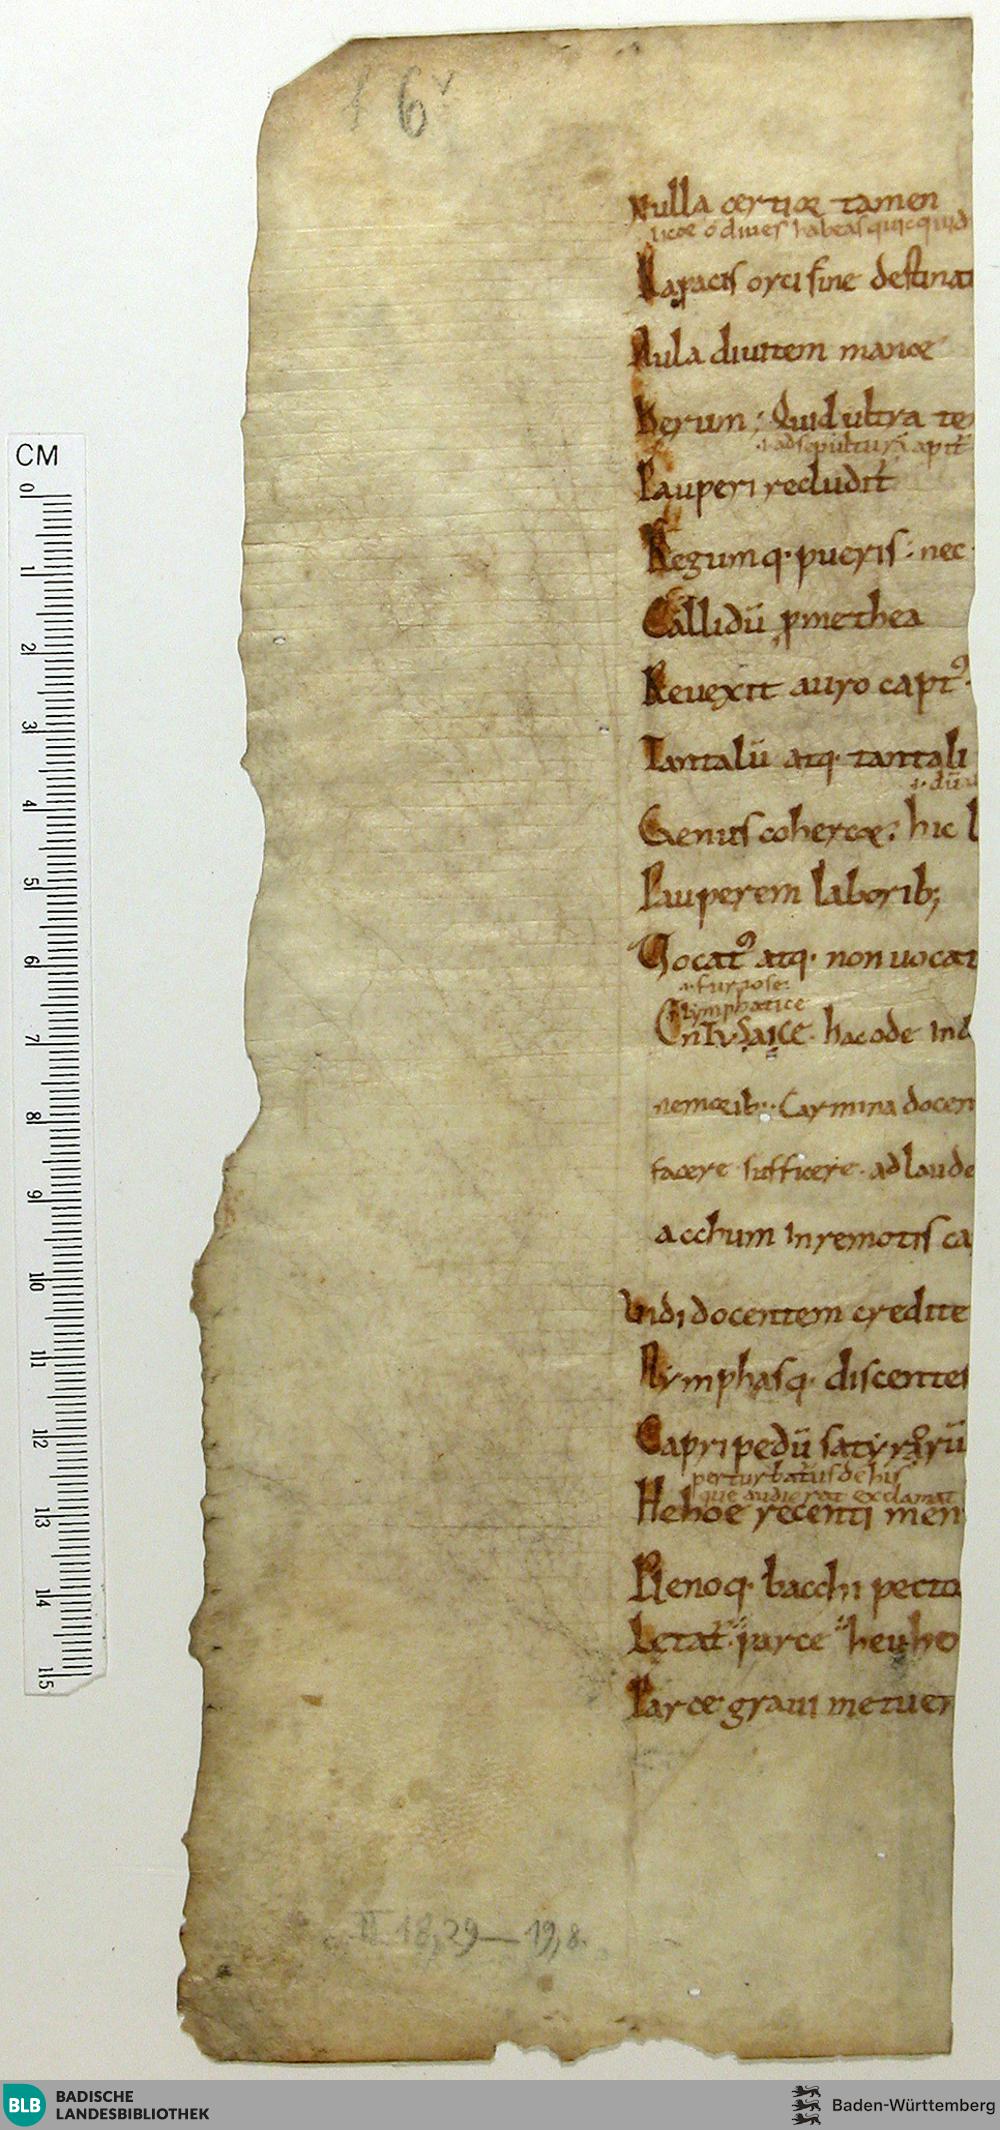 f 6v
Nulla certior tamen
licæ o diues habeas quicquid
Rapacis orci fine destinat
Aula diuitem manæ
Herum; Quid ultra te
.i. ad sepulturā apit
Pauperi recludit
Regumq· pueris: nec
Callidū pmethea
Reuexit auro capt9·
Tantalū atq· tantali
.i. dū
Genus cohercæ; hic l
Pauperem laborib;
Vocat9 atq· non uocat
Nymphatice
EnTuSaiCe· hac ode ind
nemorib· Carmina docen
facere sufficere· ad laude
acchum In remotis ca
Vidi docentem credite
Nymphasq· discentes
Capripedū satyrorū
perturbatus de his
que audierat exclamat
Hehoe recenti men
Plenoq· bacchi pecto
Lętat· parce heuho
Parce graui metuen
II 18,29—19,8.
CM
0
1
2
3
4
5
6
7
8
9
10
11
12
13
14
15
BLB
BADISCHE
LANDESBIBLIOTHEK
Baden-Württemberg